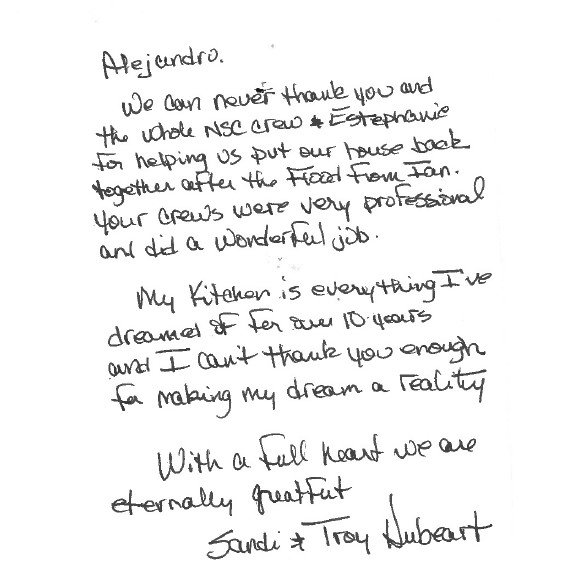 Alejandro.
We can never thank you and
the whole NSC crew & Estephanie
for helping us put our house back
together after the Flood from Ian.
Your crews were very professional
and did a wonderful job.
My Kitchen is everything I've
dreamed of for over 10 years
and I can't thank you enough
for making my dream a reality
With a full heart we are
eternally greatful
Sandi & Troy Hubeart